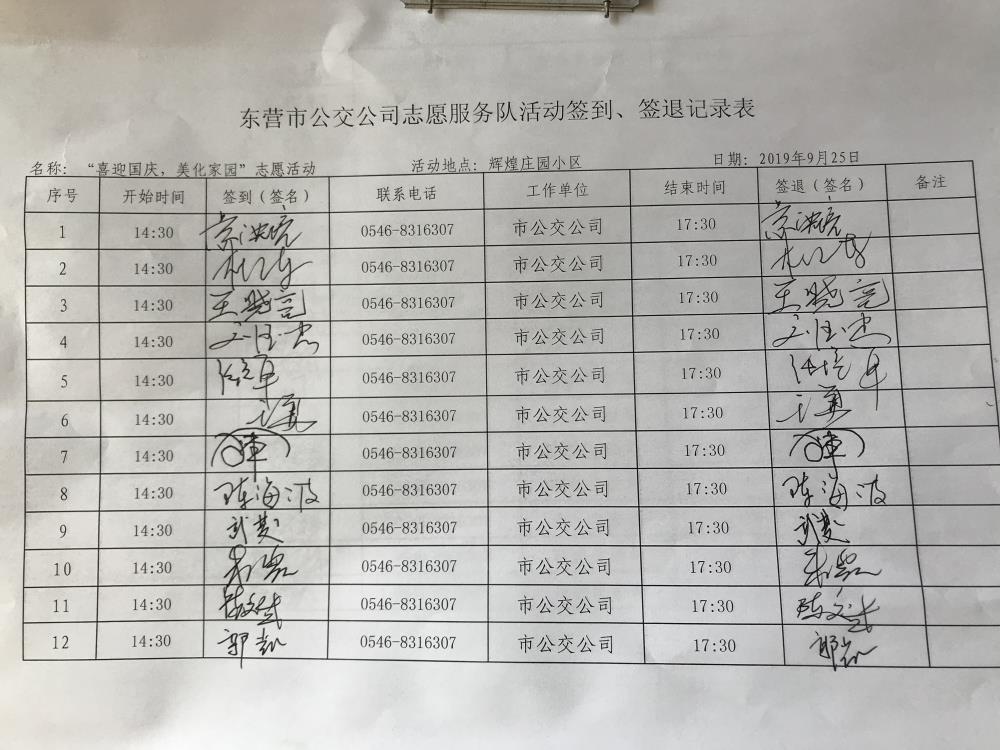 东营市公交公司志愿服务队活动签到、签退记录表
名称：“喜迎国庆，美化家园”志愿活动 活动地点：辉煌庄园小区 日期：2019年9月25日
序号 开始时间 签到（签名） 联系电话 工作单位 结束时间 签退（签名） 备注
1 14:30 0546-8316307 市公交公司 17:30
2 14:30 0546-8316307 市公交公司 17:30
3 14:30 王晓亮 0546-8316307 市公交公司 17:30 王晓亮
4 14:30 0546-8316307 市公交公司 17:30
5 14:30 0546-8316307 市公交公司 17:30
6 14:30 0546-8316307 市公交公司 17:30
7 14:30 0546-8316307 市公交公司 17:30
8 14:30 陈海波 0546-8316307 市公交公司 17:30 陈海波
9 14:30 0546-8316307 市公交公司 17:30
10 14:30 0546-8316307 市公交公司 17:30
11 14:30 0546-8316307 市公交公司 17:30
12 14:30 郭凯 0546-8316307 市公交公司 17:30 郭凯